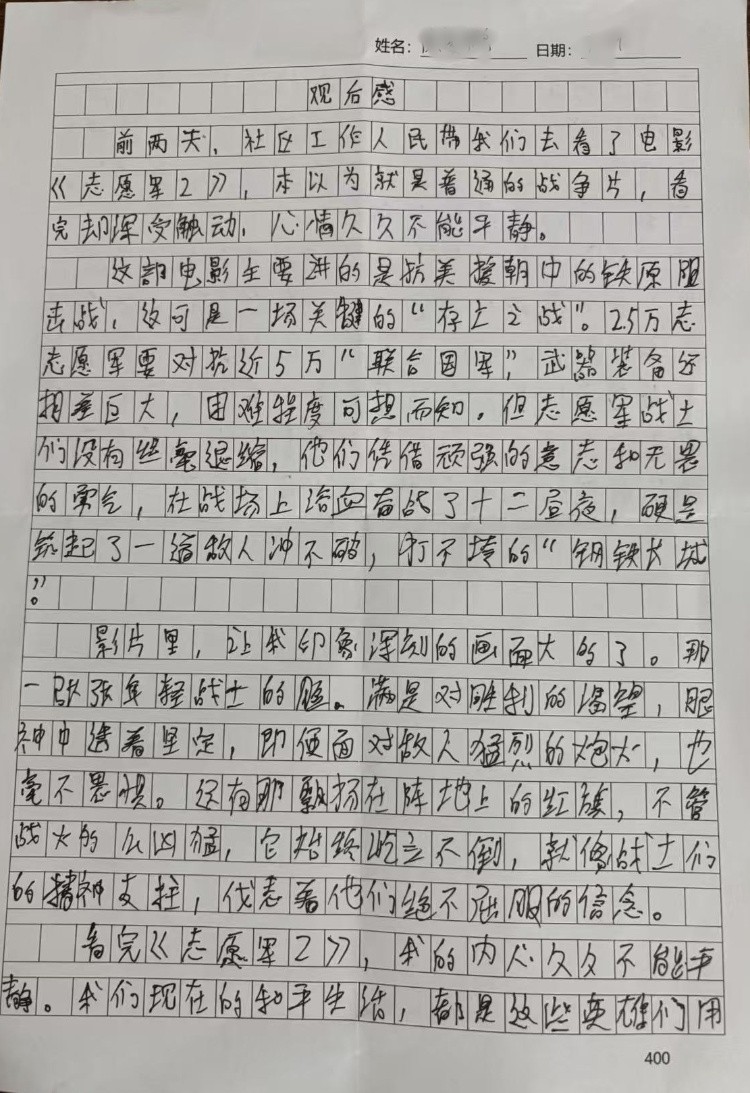 姓名: 日期:
观后感
前两天，社区工作人民带我们去看了电影
《志愿军2》，本以为就是普通的战争片，看
完却深受触动，心情久久不能平静。
这部电影主要讲的是抗美援朝中的铁原阻
击战，这可是一场关键的“存亡之战”。2.5万志
志愿军要对抗近5万“联合国军”，武器装备还
相差巨大，困难程度可想而知。但志愿军战士
们没有丝毫退缩，他们凭借顽强的意志和无畏
的勇气，在战场上浴血奋战了十二昼夜，硬是
筑起了一道敌人冲不破，打不垮的“钢铁长城
”。
影片里，让我印象深刻的画面太的了。那
一张张年轻战士的脸。满是对胜利的渴望，眼
神中透着坚定，即便面对敌人猛烈的炮火，也
毫不畏惧。还有那飘扬在阵地上的红旗，不管
战火的么凶猛，它始终屹立不倒，就像战士们
的精神支柱，代志着他们绝不屈服的信念。
看完《志愿军2》，我的内心久久不能平
静。我们现在的和平生活，都是这些英雄们用
400